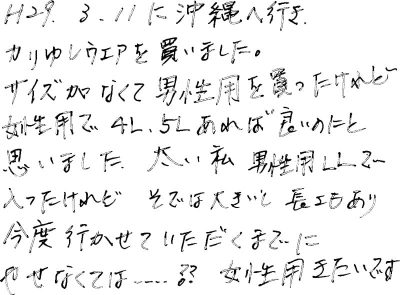 H29. 3.11に沖縄へ行き.
かりゆしウエアを買いました。
サイズがなくて男性用を買ったけれど
女性用で 4L、5Lあれば良いのにと
思いました. 太い私 男性用LLで
入ったけれど そでは大きいし 長エもあり
今度行かせていただくまでに
やせなくては……?? 女性用きたいです